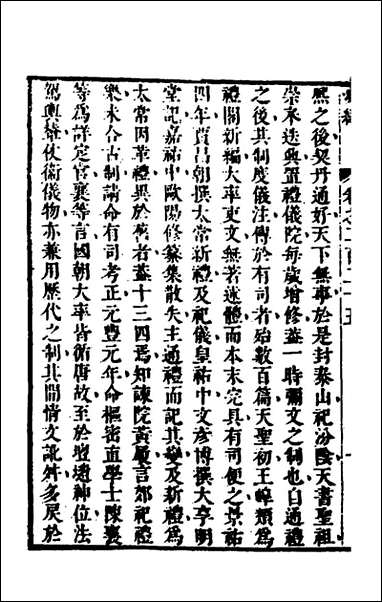 熈之後契丹通好天下無事於是封泰山祀汾陰天書聖祖
崇奉迭興置禮儀院每歲增修葢一時彌文之制也自通禮
之後其制度儀注傳於有司者殆數百篇天聖初王皥類爲
禮閣新編大率吏文無著述體而本末完具有司便之景祐
四年賈昌朝撰太常新禮及祀儀皇祐中文彥博撰大享明
堂記嘉祐中歐陽修纂集散失主通禮而記其變及新禮爲
太常因革禮異於舊者葢十三四焉知諫院黃履言郊祀禮
樂未合古制請命有司考正元豐元年命樞密直學士陳襄
等爲詳定官襄等言國朝大率皆循唐故至於壇壝神位法
駕輿輦仗衞儀物亦兼用歷代之制其閒情文訛舛多戾於